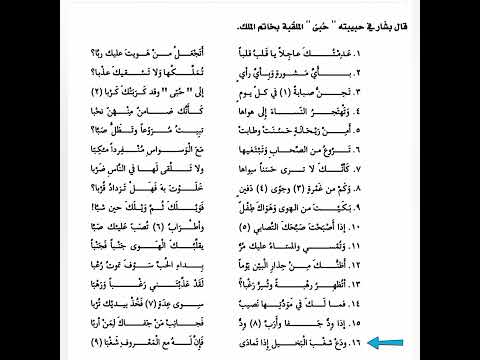 قال بشار في حبيبته "حُبىّ" الملقبة بخاتم الملك.
١. عَدِمْتُكَ عاجِلاً يا قَلبُ قَلباً أَتَجْعَلُ مَنْ هَوِيتَ عليك ربّا؟
٢. بأَيِّ مَشورةٍ وبِأَيِّ رأي تُمَلِّكُها ولا تَسْقيكَ عذبا؟
٣. تَحِنُّ صبابةً (١) في كلّ يومٍ إلى "حُبّى" وقد كَرَبَتْكَ كَرْبا (٢)
٤. وتَهْتَجِرُ النّساءَ إلى هواها كَأَنَّكَ ضامنٌ مِنْهُنّ نَحْبا
٥. أَمِنْ رَيْحانَةٍ حَسُنَتْ وطابتْ تبيتُ مُرَوَّعاً وتَظَلُّ صَبّا؟
٦. تَرُوعُ من الصّحابِ وتَبْتَغيها مَعَ الوَسواسِ مُنْفَرِداً مُكِبّا
٧. كأَنَّكَ لا ترى حَسَناً سِواها ولا تَلْقى لَها في النّاسِ ضَربا
٨. وكَمْ من غَمْرةٍ (٣) وجَوى (٤) دَفينٍ خَلَوْتَ بهِ فَهَلْ تَزدادُ قُربا؟
٩. بَكَيْتَ من الهوى وهَواكَ طِفْلٌ فَوَيْلَكَ ثُمَّ وَيْلَكَ حين شَبّا!
١٠. إذا أَصْبَحْتَ صَبَّحَكَ التّصابي (٥) وأطرابٌ (٦) تُصَبُّ عَليْكَ صَبّا
١١. وتُمْسي والمَساءُ عليك مُرٌّ يقلّبُكَ الهوى جَنْباً فَجَنْبا
١٢. أَظُنُّكَ مِنْ حِذارِ البَيْنِ يَوْماً بِداءِ الحُبِّ سَوْفَ تموتُ رُعْبا
١٣. أَتُظْهِرُ رَهْبَةً وتُسِرُّ رَغْباً؟ لَقَدْ عَذَّبْتَني رَغَباً وَرَهْبا
١٤. فما لَكَ في مَوَدَّتِها نَصيبٌ سِوى عِدَةٍ (٧) فَخُذْ بيدَيْكَ تُرْبا
١٥. إذا وِدٌّ جَفا وأَرَبَّ (٨) وِدٌّ فَجانِبْ مَنْ جَفاكَ لِمَنْ أَرَبّا
١٦. ودَعْ شَغْبَ البَخيلِ إذا تَمادَى فَإِنَّ لَهُ مَعَ المَعْروفِ شَغْبا (٩)